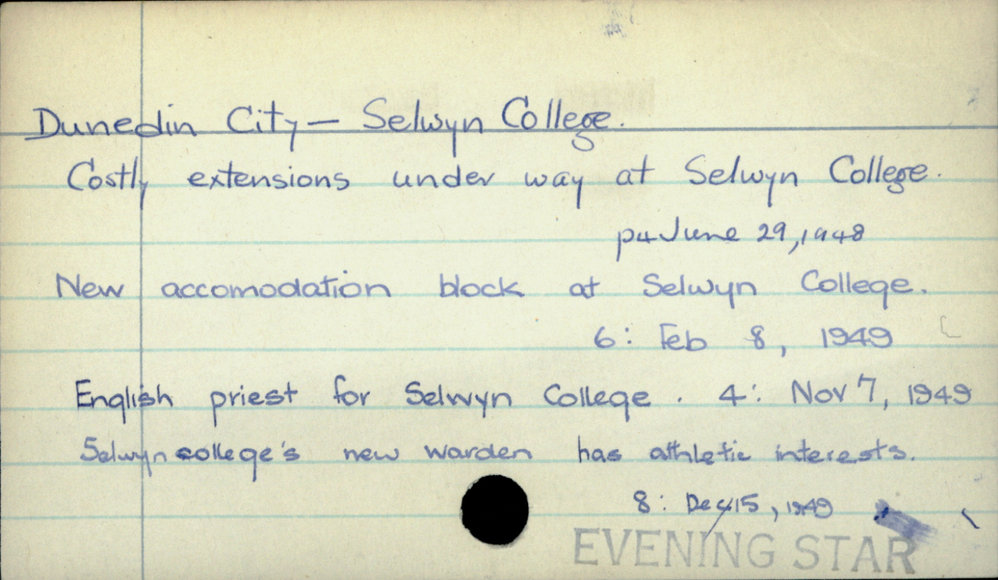 Dunedin City — Selwyn College.
Costly extensions under way at Selwyn College.
p4 June 29, 1948
New accomodation block at Selwyn College.
6: Feb 8, 1949
English priest for Selwyn College. 4: Nov 7, 1949
Selwyn college's new warden has athletic interests.
8: Dec 15, 1949
EVENING STAR